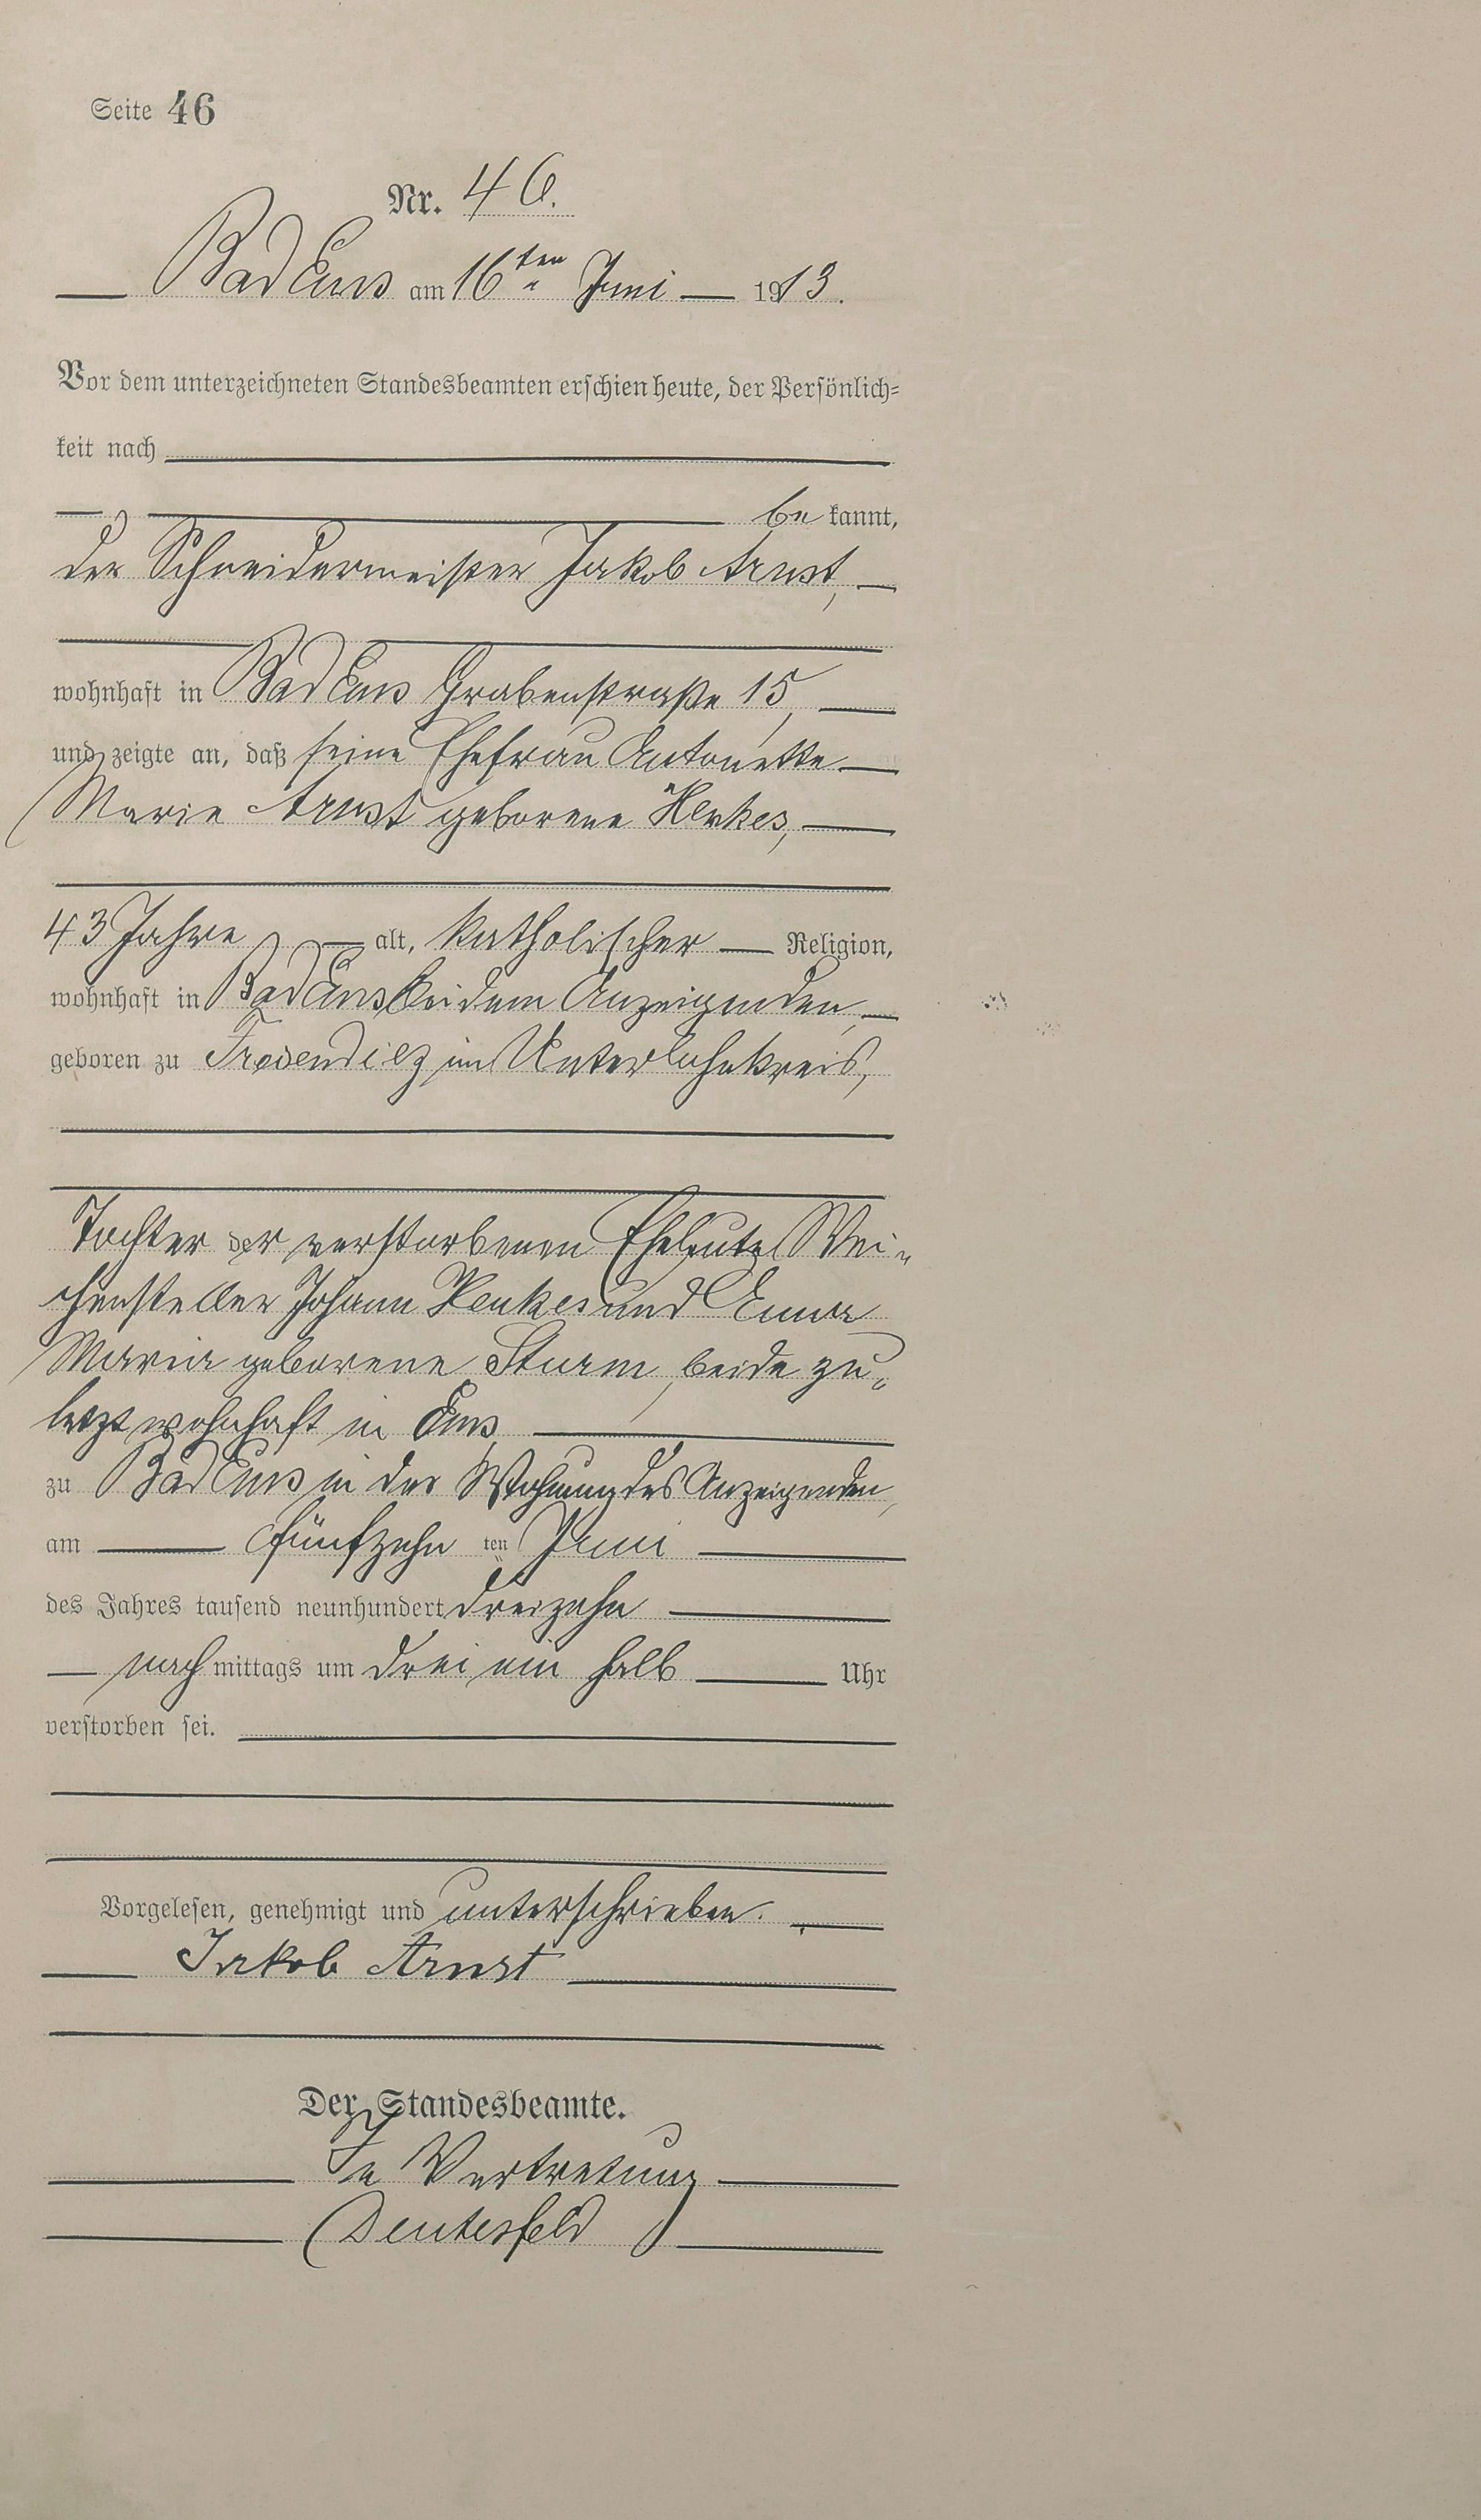 Seite 46
Nr. 46.
Bad Ems am 16ten Juni 1913.
Vor dem unterzeichneten Standesbeamten erschien heute, der Persönlich-
keit nach
be kannt,
der Schneidermeister Jakob Arnst,
wohnhaft in Bad Ems Grabenstraße 15,
und zeigte an, daß seine Ehefrau Antonette
Marie Arnst geborene Henkes,
43 Jahre alt, katholischer Religion,
wohnhaft in Bad Ems bei dem Anzeigenden,
geboren zu Freiendiez im Unterlahnkreis,
Tochter der verstorbenen Eheleute Wei-
chensteller Johann Henkes und
Maria geborene Sturm, beide zu-
letzt wohnhaft in Ems
zu Bad Ems in der Wohnung des Anzeigenden,
am fünfzehn ten Juni
des Jahres tausend neunhundert dreizehn
nach mittags um drei ein halb Uhr
verstorben sei.
Vorgelesen, genehmigt und unterschrieben.
Jakob Arnst
Der Standesbeamte.
In Vertretung